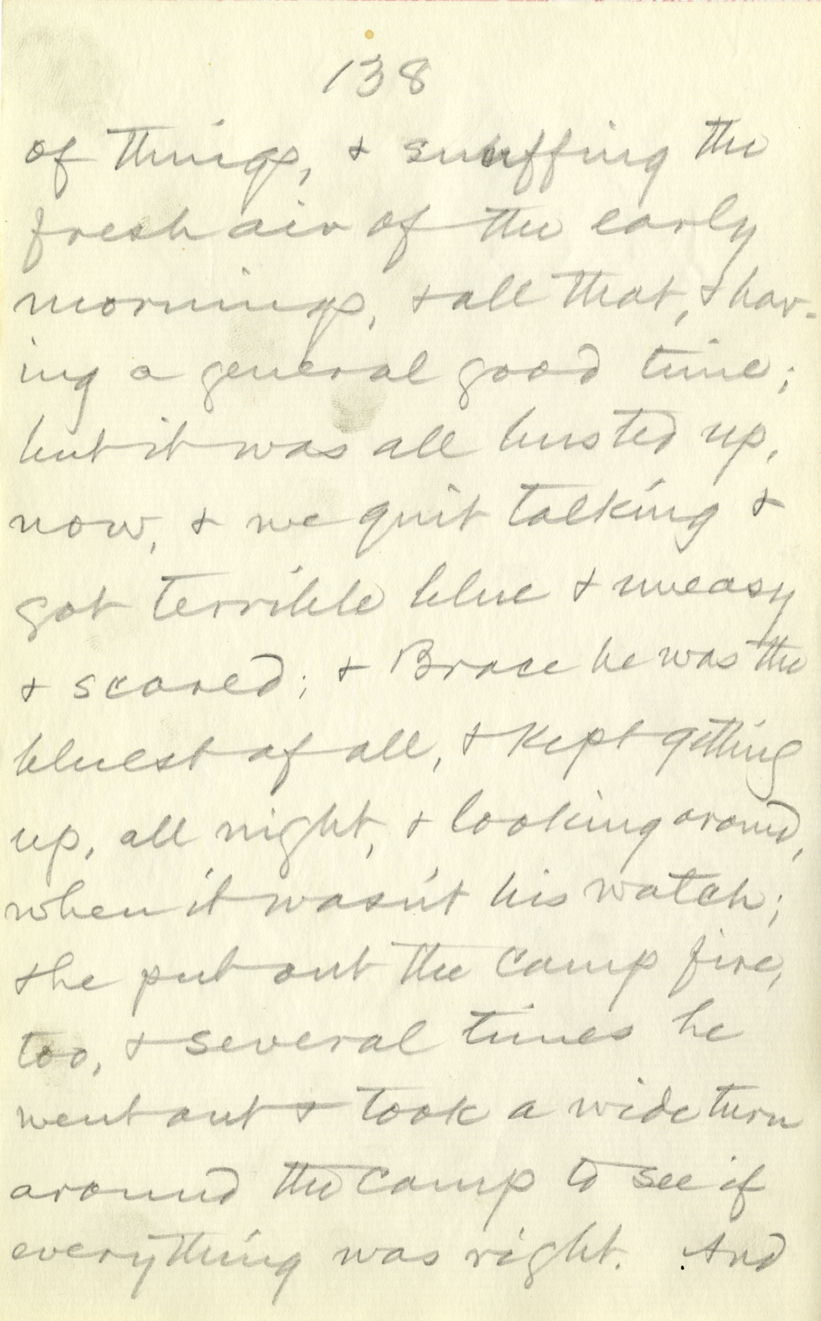 138
of things, & snuffing the
fresh air of the early
mornings, & all that, & hav-
ing a general good time;
but it was all busted up,
now, & we quit talking &
got terrible blue & uneasy
& scared; & Brace he was the
bluest of all, & kept getting
up, all night, & looking around,
when it wasn't his watch;
& he put out the camp fire,
too, & several times he
went out & took a wide turn
around the camp to see if
everything was right. And